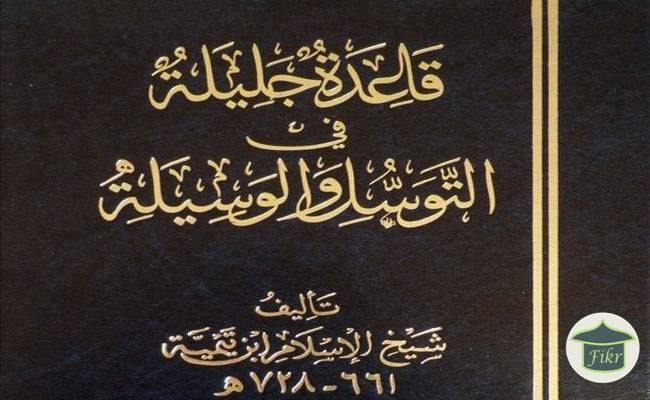 قَاعِدَةٌ جَلِيلَةٌ
في
التَّوَسُّلِ وَالوَسِيلَةِ
تأليف
شَيخ الإسْلَام ابن تَيْميَّة
٦٦١ - ٧٢٨ ه
Fikr